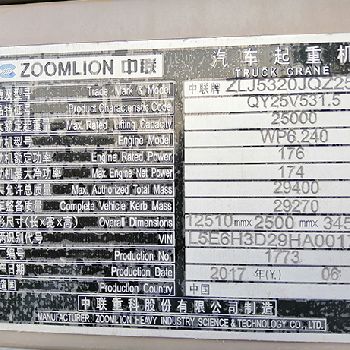 ZOOMLION 中联 汽车起重机
TRUCK CRANE
Trade Mark & Model 中联牌 ZLJ5320JQZ25
Product Characteristic Code QY25V531.5
Max. Rated Lifting Capacity 25000
Engine Model WP6.240
Engine Rated Power 176
Max. Engine Net Power 174
Max. Authorized Total Mass 29400
Complete Vehicle Kerb Mass 29270
尺寸(长x宽x高) Overall Dimensions 12510 mm× 2500 mm× 345
识别代号 VIN L5E6H3D29HA001
Production No. 1773
Production Date 2017 年(Y) 06
Production Country 中国
中联重科股份有限公司制造
MANUFACTURER ZOOMLION HEAVY INDUSTRY SCIENCE & TECHNOLOGY CO., LTD.